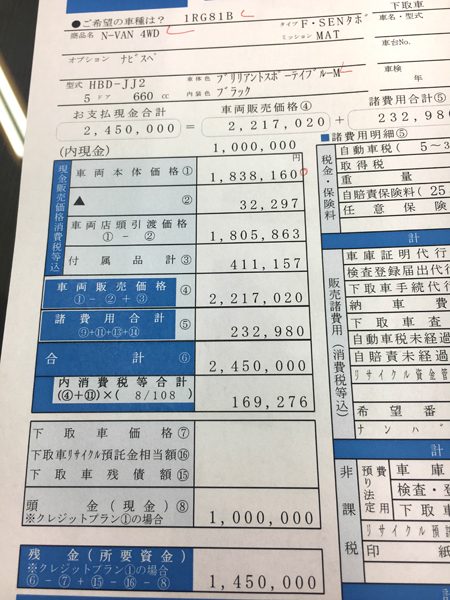 下取車
●ご希望の車種は? 1RG81B
商品名 N-VAN 4WD タイプ F・SENタボ 車名・型式
オプション ナビスペ ミッション MAT 車台No.
型式 HBD-JJ2 車体色 ブリリアントスポーティブルーM 車検 年
5ドア 660 cc 内装色 ブラック
お支払現金合計 車両販売価格④ 諸費用合計⑤
2,450,000 = 2,217,020 + 232,980
■諸費用明細⑤
(内現金) 1,000,000
現金販売価格消費税等込
車両本体価格① 1,838,160 円
▲ ② 32,297
車両店頭引渡価格 ①-② 1,805,863
付属品計③ 411,157
車両販売価格 ①-②+③ ④ 2,217,020
諸費用合計 ⑨+⑪+⑬+⑭ ⑤ 232,980
合計⑥ 2,450,000
内消費税等合計 (④+⑪)×( 8/108 ) 169,276
下取車価格⑦
下取車リサイクル預託金相当額⑯
下取車残債額⑮
頭金(現金)⑧ ※クレジットプラン①の場合 1,000,000
残金(所要資金) ※クレジットプラン①の場合 ⑥-⑦+⑮-⑯-⑧ 1,450,000
税金・保険料
自動車税( 5~3
取得税
重量
自賠責保険料( 25
任意保険
計
販売諸費用(消費税等込)
車庫証明代行
検査登録届出代行
下取車手続代行
納車費
下取車査
自動車税未経過
自賠責未経過
リサイクル資金管
希望番
ナンバ
計
非課税
預り法定費用
車庫
検査・登
下取車
リサイクル預託
印紙
計